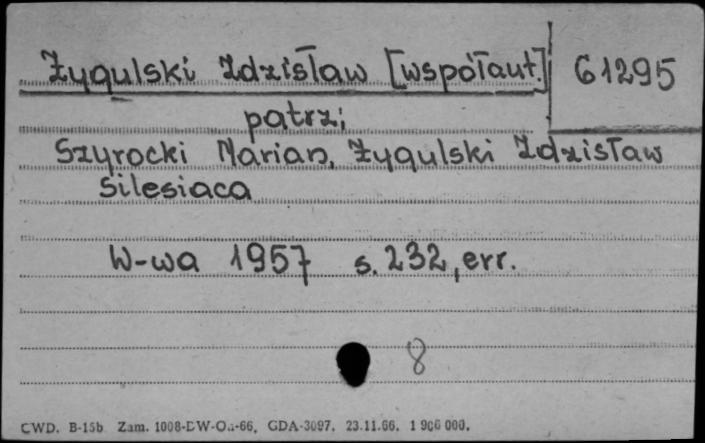 Żygulski Zdzisław [współaut.] 61295
patrz:
Szyrocki Marian, Żygulski Zdzisław
Silesiaca
W-wa 1957 s. 232, err.
8
CWD. B-15b Zam. 1008-DW-Oa-66, GDA-3097. 23.11.66. 1 900 000.